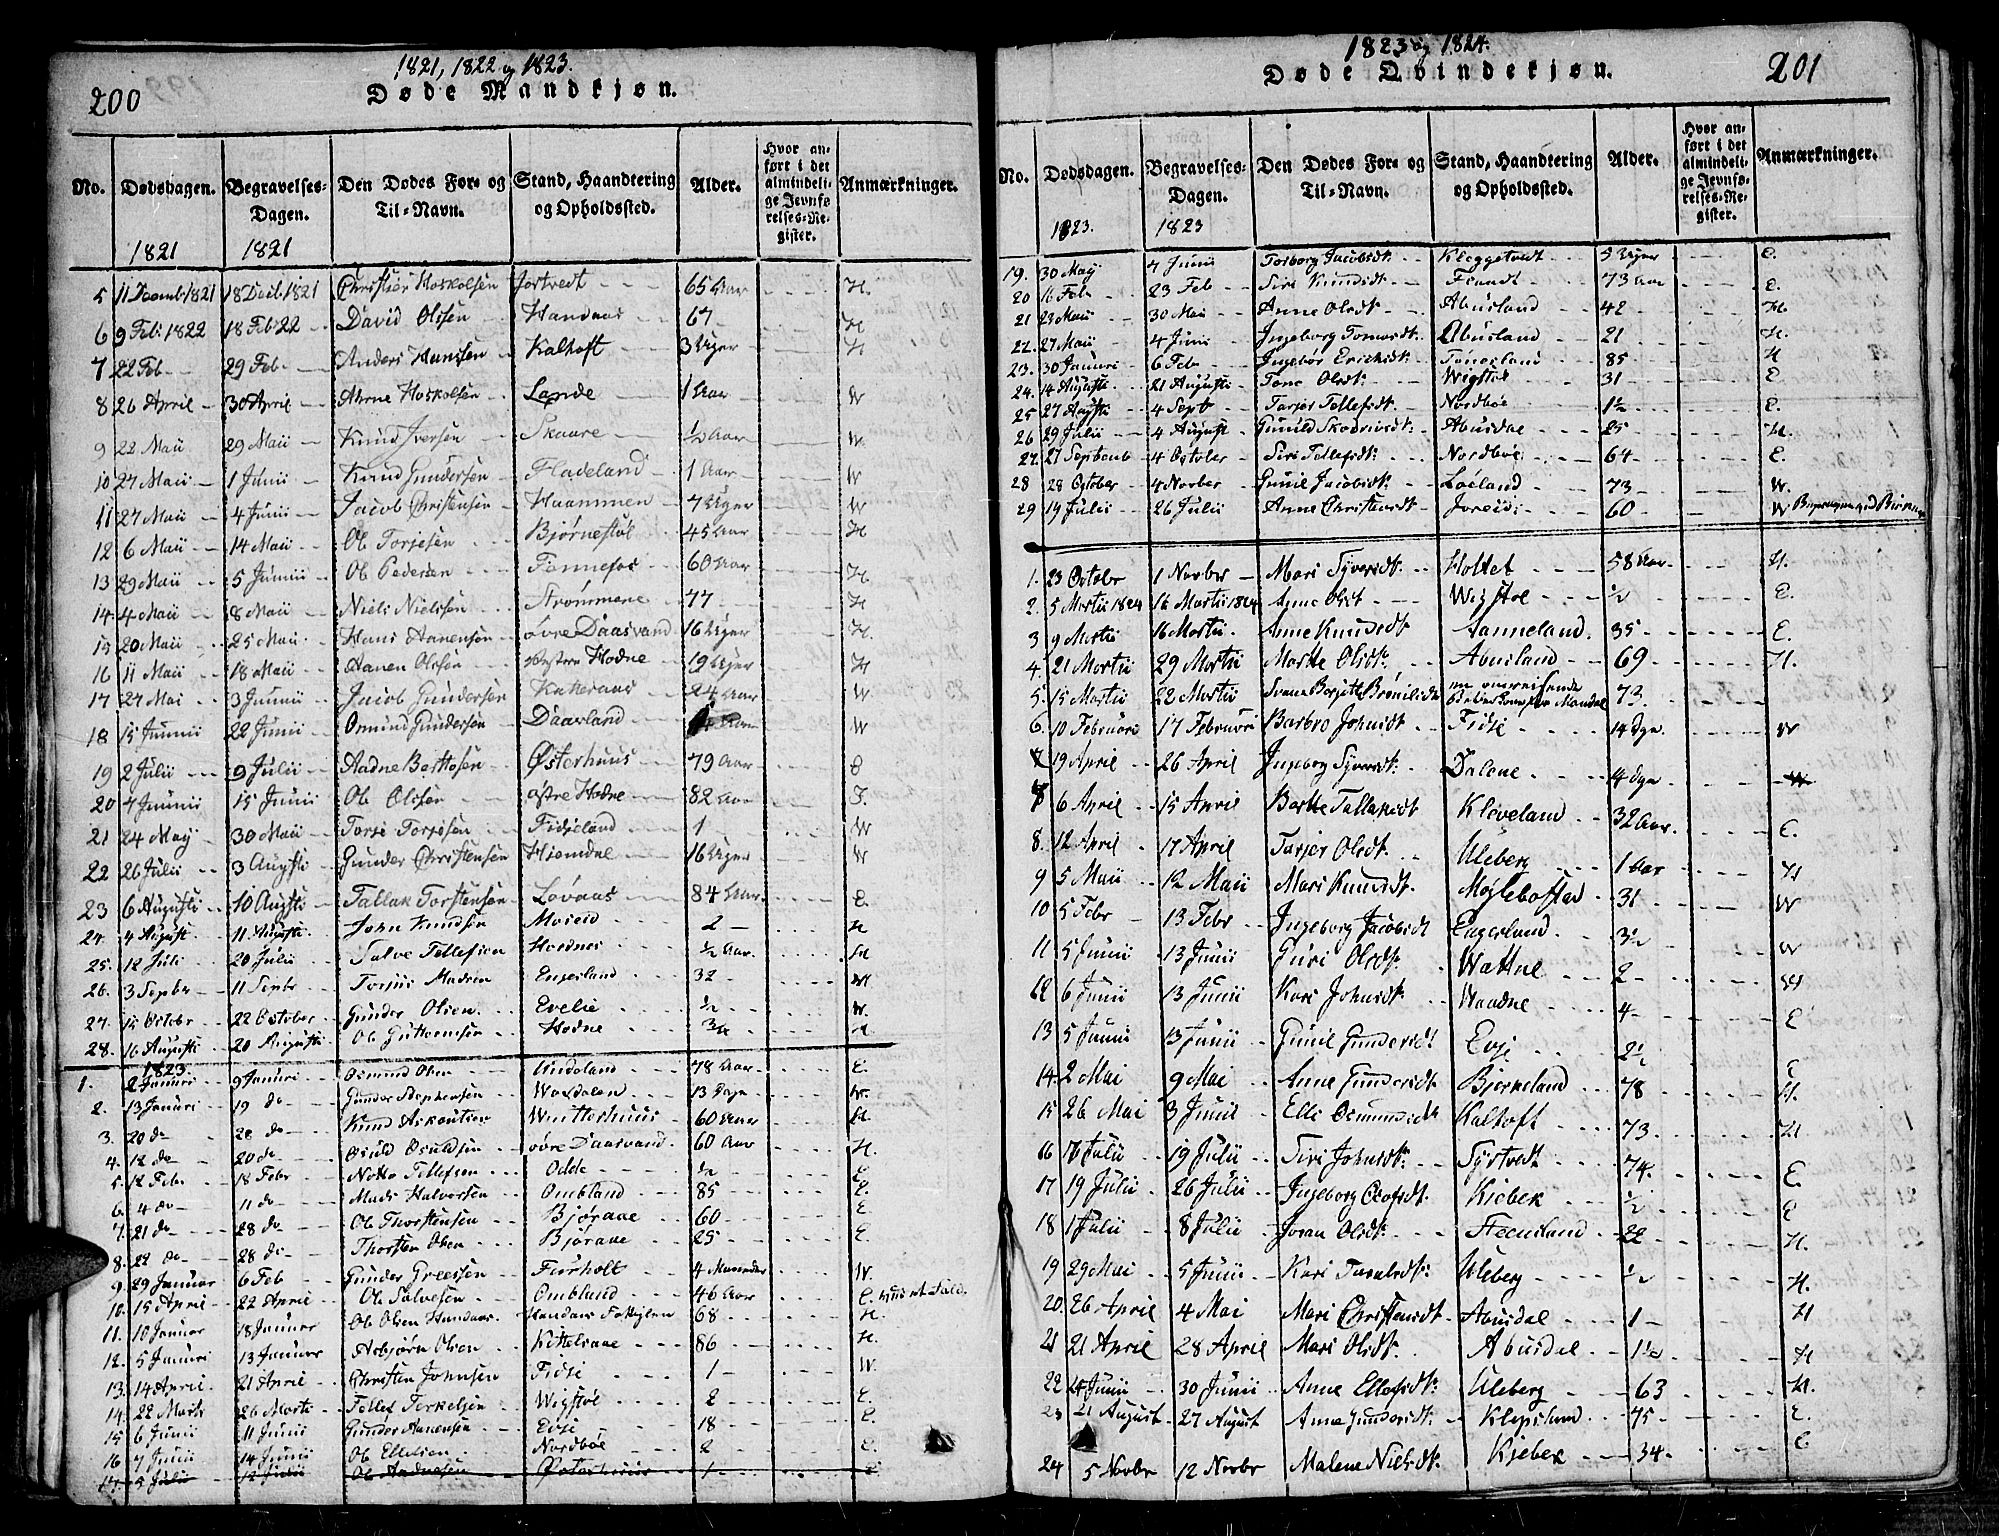 200
1821, 1822 og 1823.
Døde Mandkjøn.
No. Dødsdagen. Begravelses-Dagen. Den Dødes For- og Til-Navn. Stand, Haandtering og Opholdssted. Alder. Hvor anført i det almindelige Jevnførelses-Register. Anmærkninger.
1821 1821
5 11 Decemb 1821 18 Decb 1821 Christier Hoskolsen Jortvedt 65 Aar H.
6 9 Feb 1822 18 Feb 22 David Olsen Handaas 67 H
7 22 Feb 29 Feb Anders Hansen Kalhoft 3 Uger H
8 26 April 30 April Hoskolsen Lande 1 Aar W
9 22 Maii 29 Maii Knud Iversen Skaare ½ Aar W.
10 27 Maii 1 Junii Knud Gundersen Fladeland 1 Aar W
11 27 Maii 4 Junii Jacob Christensen Haammen 7 Uger W
12 6 Maii 14 Maii Ol Torjesen Bjørnestøl 45 Aar H
13 29 Maii 5 Junii Ol Pedersen Fennefos 60 Aar H.
14 4 Maii 8 Maii Niels Nielsen Strømmene 77 H
15 20 Maii 25 Maii Hans Aanensen øvre Daasvand 16 Uger H.
16 11 Maii 18 Maii Aanen Olsen Hodne 19 Uger H
17 27 Mai 3 Junii Jacob Gundersen Katteraas 24 Aar W.
18 15 Junii 22 Junii Osmund Gundersen Daavland Aar W
19 2 Julii 9 Julii Aadne Berthosen Østerhuus 79 Aar
20 7 Junii 15 Junii Ol Olsen Hodne 82 Aar
21 24 May 30 Maii Torje Torjesen Fidjeland 1 W
22 26 Julii 3 Augsti Gunder Christensen Hjemdal 16 Uger W
23 6 Augusti 10 Augsti Tallak Torstensen Løvaas 84 Aar. E.
24 4 August 11 Augsti John Knudsen Moseid 2 H
25. 12 Juli 20 Julii Talve Tellefsen Hordnes ½ Aar. H
26. 3 Sepbr 11 Sepbr Torjus Madsen Engesland 32 W
27. 15 Octobr 22 October Gunder Olsen Evelie ½ W.
28. 16 Augusti 20 Augusti Ol Guttormsen Hodne ¾ H.
1823
1. 2 Januri 9 Januri Osmund Olsen Lindeland 78 Aar E.
2. 13 Januri 19 do Gunder Stephensen 13 Dage W.
3. 20 do 28 do Knud Winterhuus 60 Aar H.
4. 12 do 20 do Osuld Osuldsen øvre Daasvand 60 Aar H.
5. 12 Febr 18 Febr Notto Tellefsen Odde ½ E
6. 4 do 11 do Mads Halvorsen Ombland 85 E.
7. 21 do 28 do Ol Thorstensen Bjøraae 60 E
8. 22 do 28 do Thorsten Olsen Bjøraae 25 E.
9. 29 Januar 6 Feb Gunder Greesen Furholt 4 Maaneder W.
10. 15 April 22 April Ol Salvesen Ombland 46 Aar E.
11. 10 Januar 18 Januar Ol Olsen Handaas Handaas 68 H.
12. 5 Januri 13 Januar Asbjørn Olsen Kittelsaae 86 H.
13. 14 April 21 April Christen Johnsen Fidje 1 W.
14. 22 Marti 26 Marti Tellef Terkelsen Wigstøl 2 E.
15 6 Junii 11 Junii Gunder Aanensen Evje 18 E.
16 7 Julii 14 Junii Ol Ellefsen Nordbøe 2 E.
17. 5 Julii 12 Julii Ol Aadnesen Østerhuus 1 E
201
1823 og 1824.
Døde Qvindekjøn.
No. Dødsdagen. Begravelses-Dagen. Den Dødes For- og Til-Navn. Stand, Haandtering og Opholdssted. Alder. Hvor anført i det almindelige Jevnførelses-Register. Anmærkninger.
1823. 1823
19. 30 May 7 Junii Torborg Jacobsdt Kleggetvedt 5 Uger E.
20 16 Feb 23 Feb Siri Knudsdt 73 Aar E.
21 23 Maii 30 Mai Anne Olsdt Abusland 42 H.
22. 27 Maii 4 Juni Ingeborg Abusland 21 H.
23. 30 Januri 6 Feb Ingebor Erichsdt. 85 H
24. 14 Augusti 21 Augusti Tone Olsdt Wigstøl 31 E
25 27 Augsti 4 Septb Tarjer Tellefsdt. Nordbøe 1½ E.
26 29 Julii 4 August Gunild Abusdal 25 H.
27. 27 Septemb 4 October Siri Tellefsdt. Nordbøe 64 E.
28 28 October 4 Norber Gunil Jacobsdt Løeland 73 W.
29 19 Julii 26 Julii Anne Christensdt 60 W
1. 23 Octobr 1 Novbr Mari Syversdt Holtet 58 Aar H.
2. 5 Martii 1824 16 Martii 1824 Anne Olsdt Wigstøl ½ E.
3 9 Martii 16 Martii. Anne Knudsdt Aanneland. 35 E.
4. 21 Martii 29 Martii Marte Olsdt. Abusland 69 H.
5. 15 Martii 22 Martii Svane Borgitte en omreisende 73.
6. 10 Februari 17 Februari Barbro Johnsdt. Fidje 14 Dge. W
7 19 April 26 April Ingeborg Syversdt. Dalene 4 Dge W
7 6 April 15 April Berthe Tallaksdt Kleveland 32 Aar. E.
8. 12 April 17 April Tarjer Olsdt. Uleberg 1 Aar H
9 5 Maii 12 Maii Mari Knudsdt. Møglebostad 31 W
10 5 Febr 13 Febr Ingeborg Jacobsdt Engesland 3½ W
11 5 Junii 13 Junii Guri Olsdt. Wattne 2 W
12 6 Junii 13 Junii Kari Johnsdt. Waadne 4 E
13 5 Junii 13 Junii Gunil Gundersdt Evje 2½ E
14. 2 Mai 9 Mai Anne Gundersdt. Bjorneland 78 H.
15 26 Mai 3 Junii Elli Osmundsdt Kalhoft 73. H
16 10 Julii 19 Julii Siri Johnsdt. Syrtvedt 74. E.
17 19 Julii 26 Julii Ingeborg Olofsdt. Kiebek ½ E
18 1 Julii 8 Julii Joran Olsdt. 22 H.
19 29 Mai 5 Junii Kari Uleberg ½ H.
20. 26 April 4 Mai Mari Christensdt Abusdal 1 H
21 21 April 28 April Mari Olsdt. Abusdal 1½ H
22 24 Junii 30 Junii Anne Ellefsdt. Uleberg 63 H.
23 21 August 27 August Anne Gundersdt. Klepsland 75 E.
24 5 Novbr 12 Novbr Malene Nielsdt. Kjebek 34. E